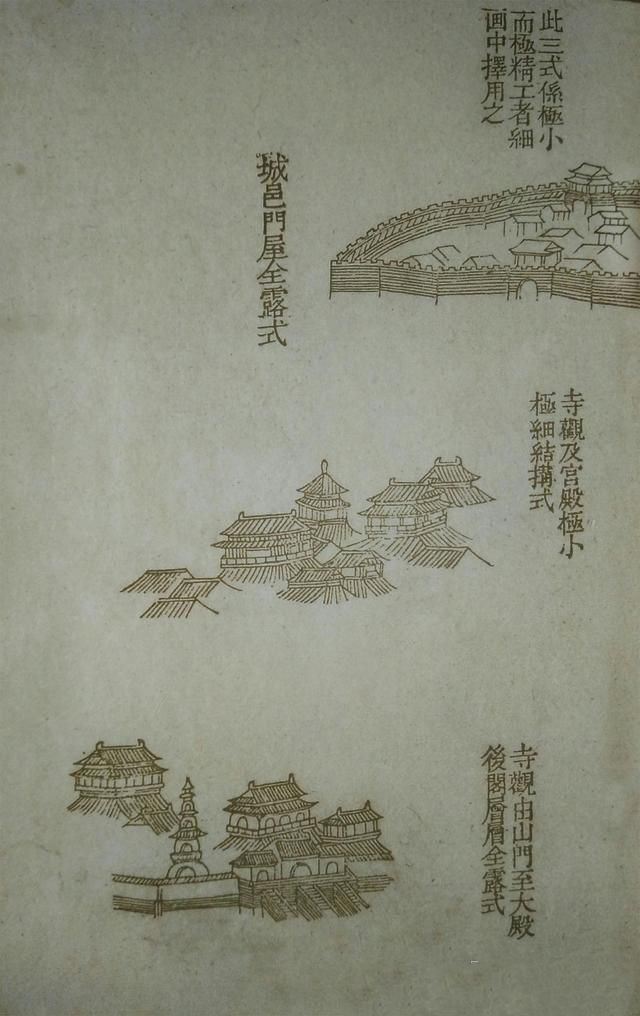 此三式係極小
而極精工者細
画中擇用之
城邑門屋全露式
寺觀及宮殿極小
極細結搆式
寺觀由山門至大殿
後閣層層全露式